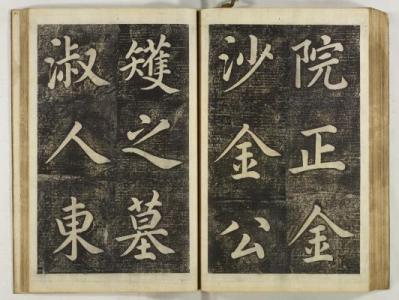 院正金
沙金公
矱之墓
淑人東